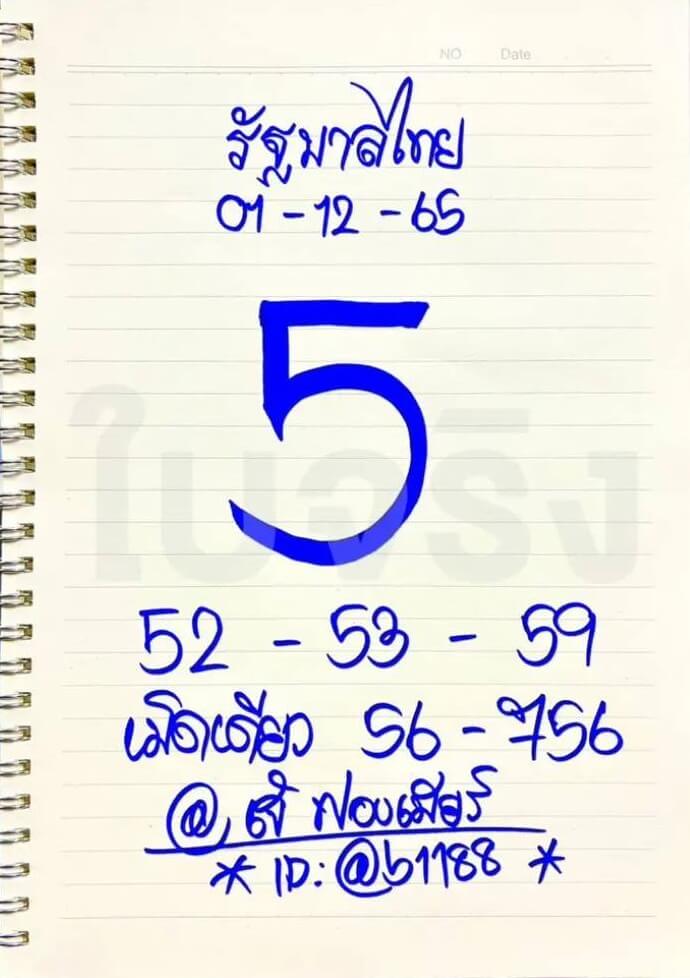 NO Date
รัฐบาลไทย
01 - 12 - 65
5
ใบจริง
52 - 53 - 59
เม็ดเดียว 56 - 756
@ เจ๊ฟองเบียร์
* ID: @b1188 *